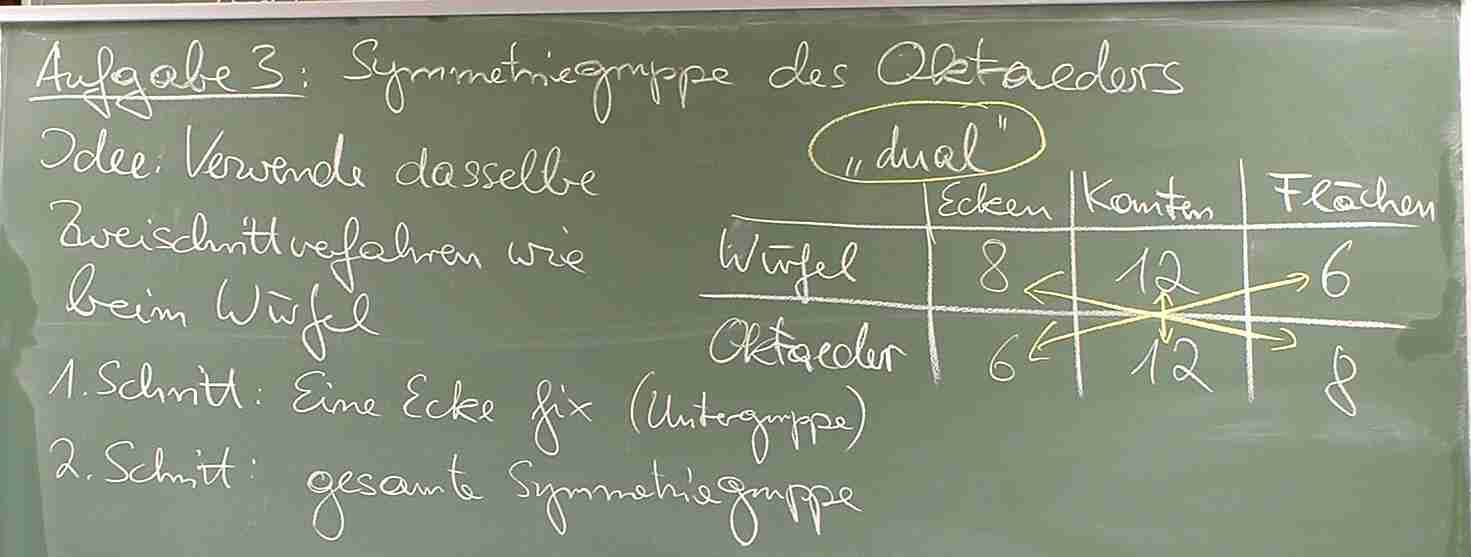 Aufgabe 3: Symmetriegruppe des Oktaeders
Idee: Verwende dasselbe
Zweischrittverfahren wie
beim Würfel
1. Schritt: Eine Ecke fix (Untergruppe)
2. Schritt: gesamte Symmetriegruppe
„dual"
Ecken Kanten Flächen
Würfel 8 12 6
Oktaeder 6 12 8